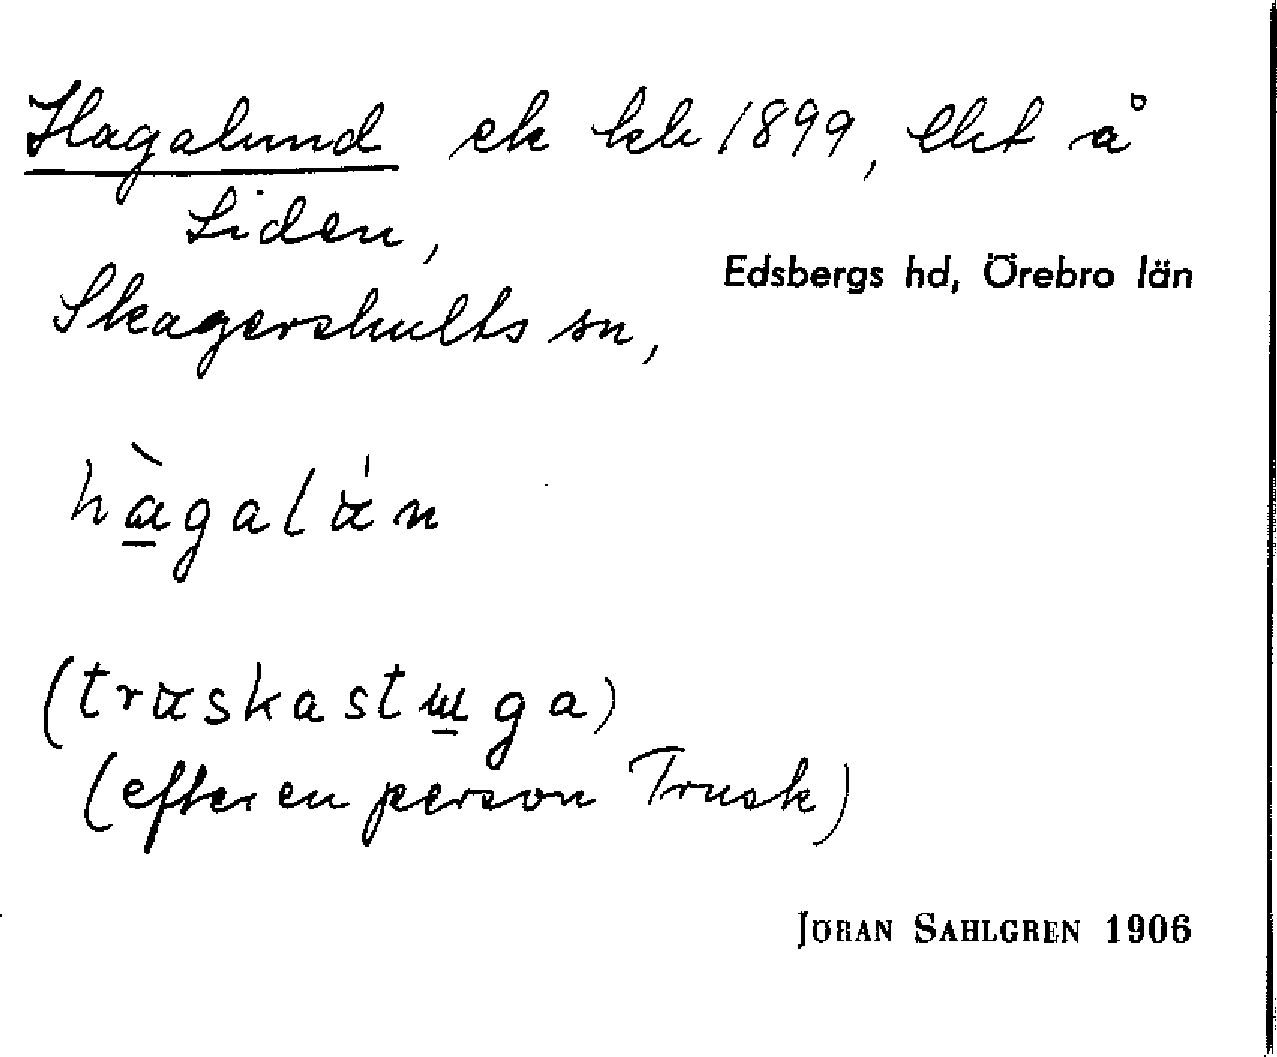 Hagalund ek kb 1899, lht å
Liden,
Edsbergs hd, Örebro län
Skagershults sn,
hàgalán
(truskastuga)
(efter en person Trusk)
JÖRAN SAHLGREN 1906